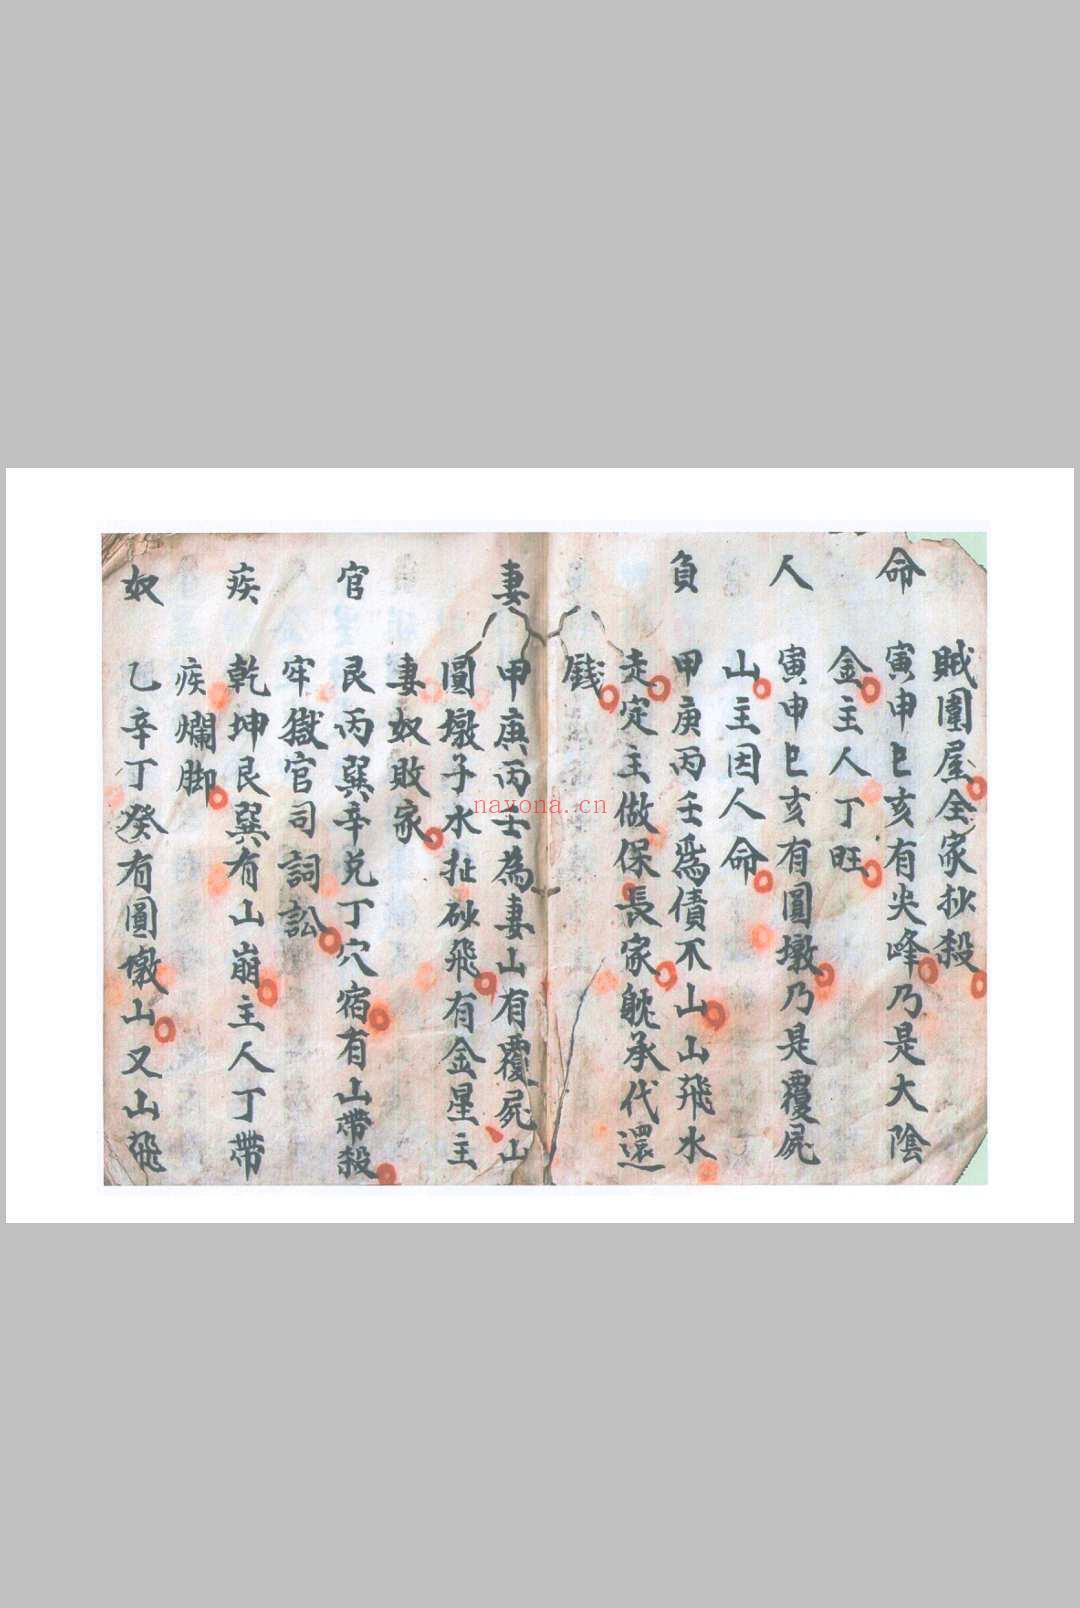 賊圍屋全家抄殺
命 寅申巳亥有尖峰乃是大陰
金主人丁旺
人 寅申巳亥有圓墩乃是覆屍
山主因人命
負 甲庚丙壬爲債不山山飛水
走定主做保長家躭承代還
錢
妻 甲庚丙壬為妻山有覆屍山
圓墩子水扯砂飛有金星主
妻奴敗家
官 艮丙巽辛兌丁穴宿有山帶殺
牢獄官司詞訟
疾 乾坤艮巽有山崩主人丁帶
疾爛脚
奴 乙辛丁癸有圓墩山又山飛
nayona.cn